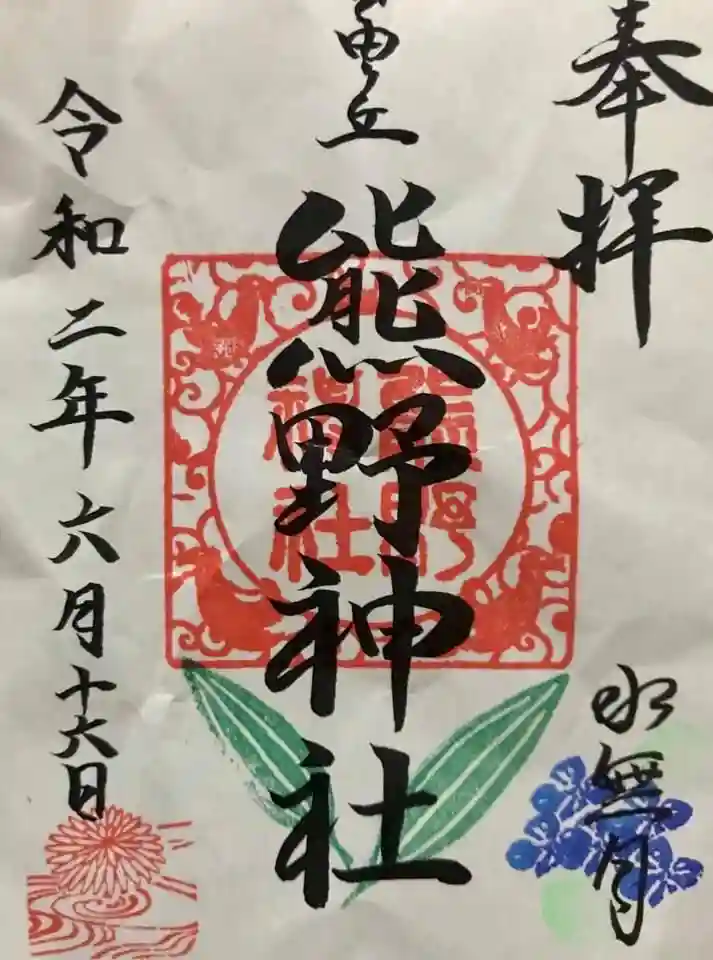 奉拝
水無月
熊野神社
熊野
神社
令和二年六月十六日